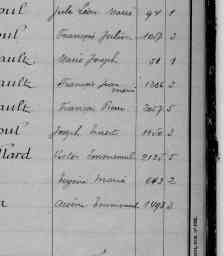 oul Jule Léon Marie 94 1
François Julien 1087 2
ault Marie Joseph 58 1
ault François Jean Marie 1306 3
ault François Pierre 2057 5
oul Joseph 1150 3
llard Victor Emmanuel 2125 5
Marie 643 2
Emmanuel 1493 3